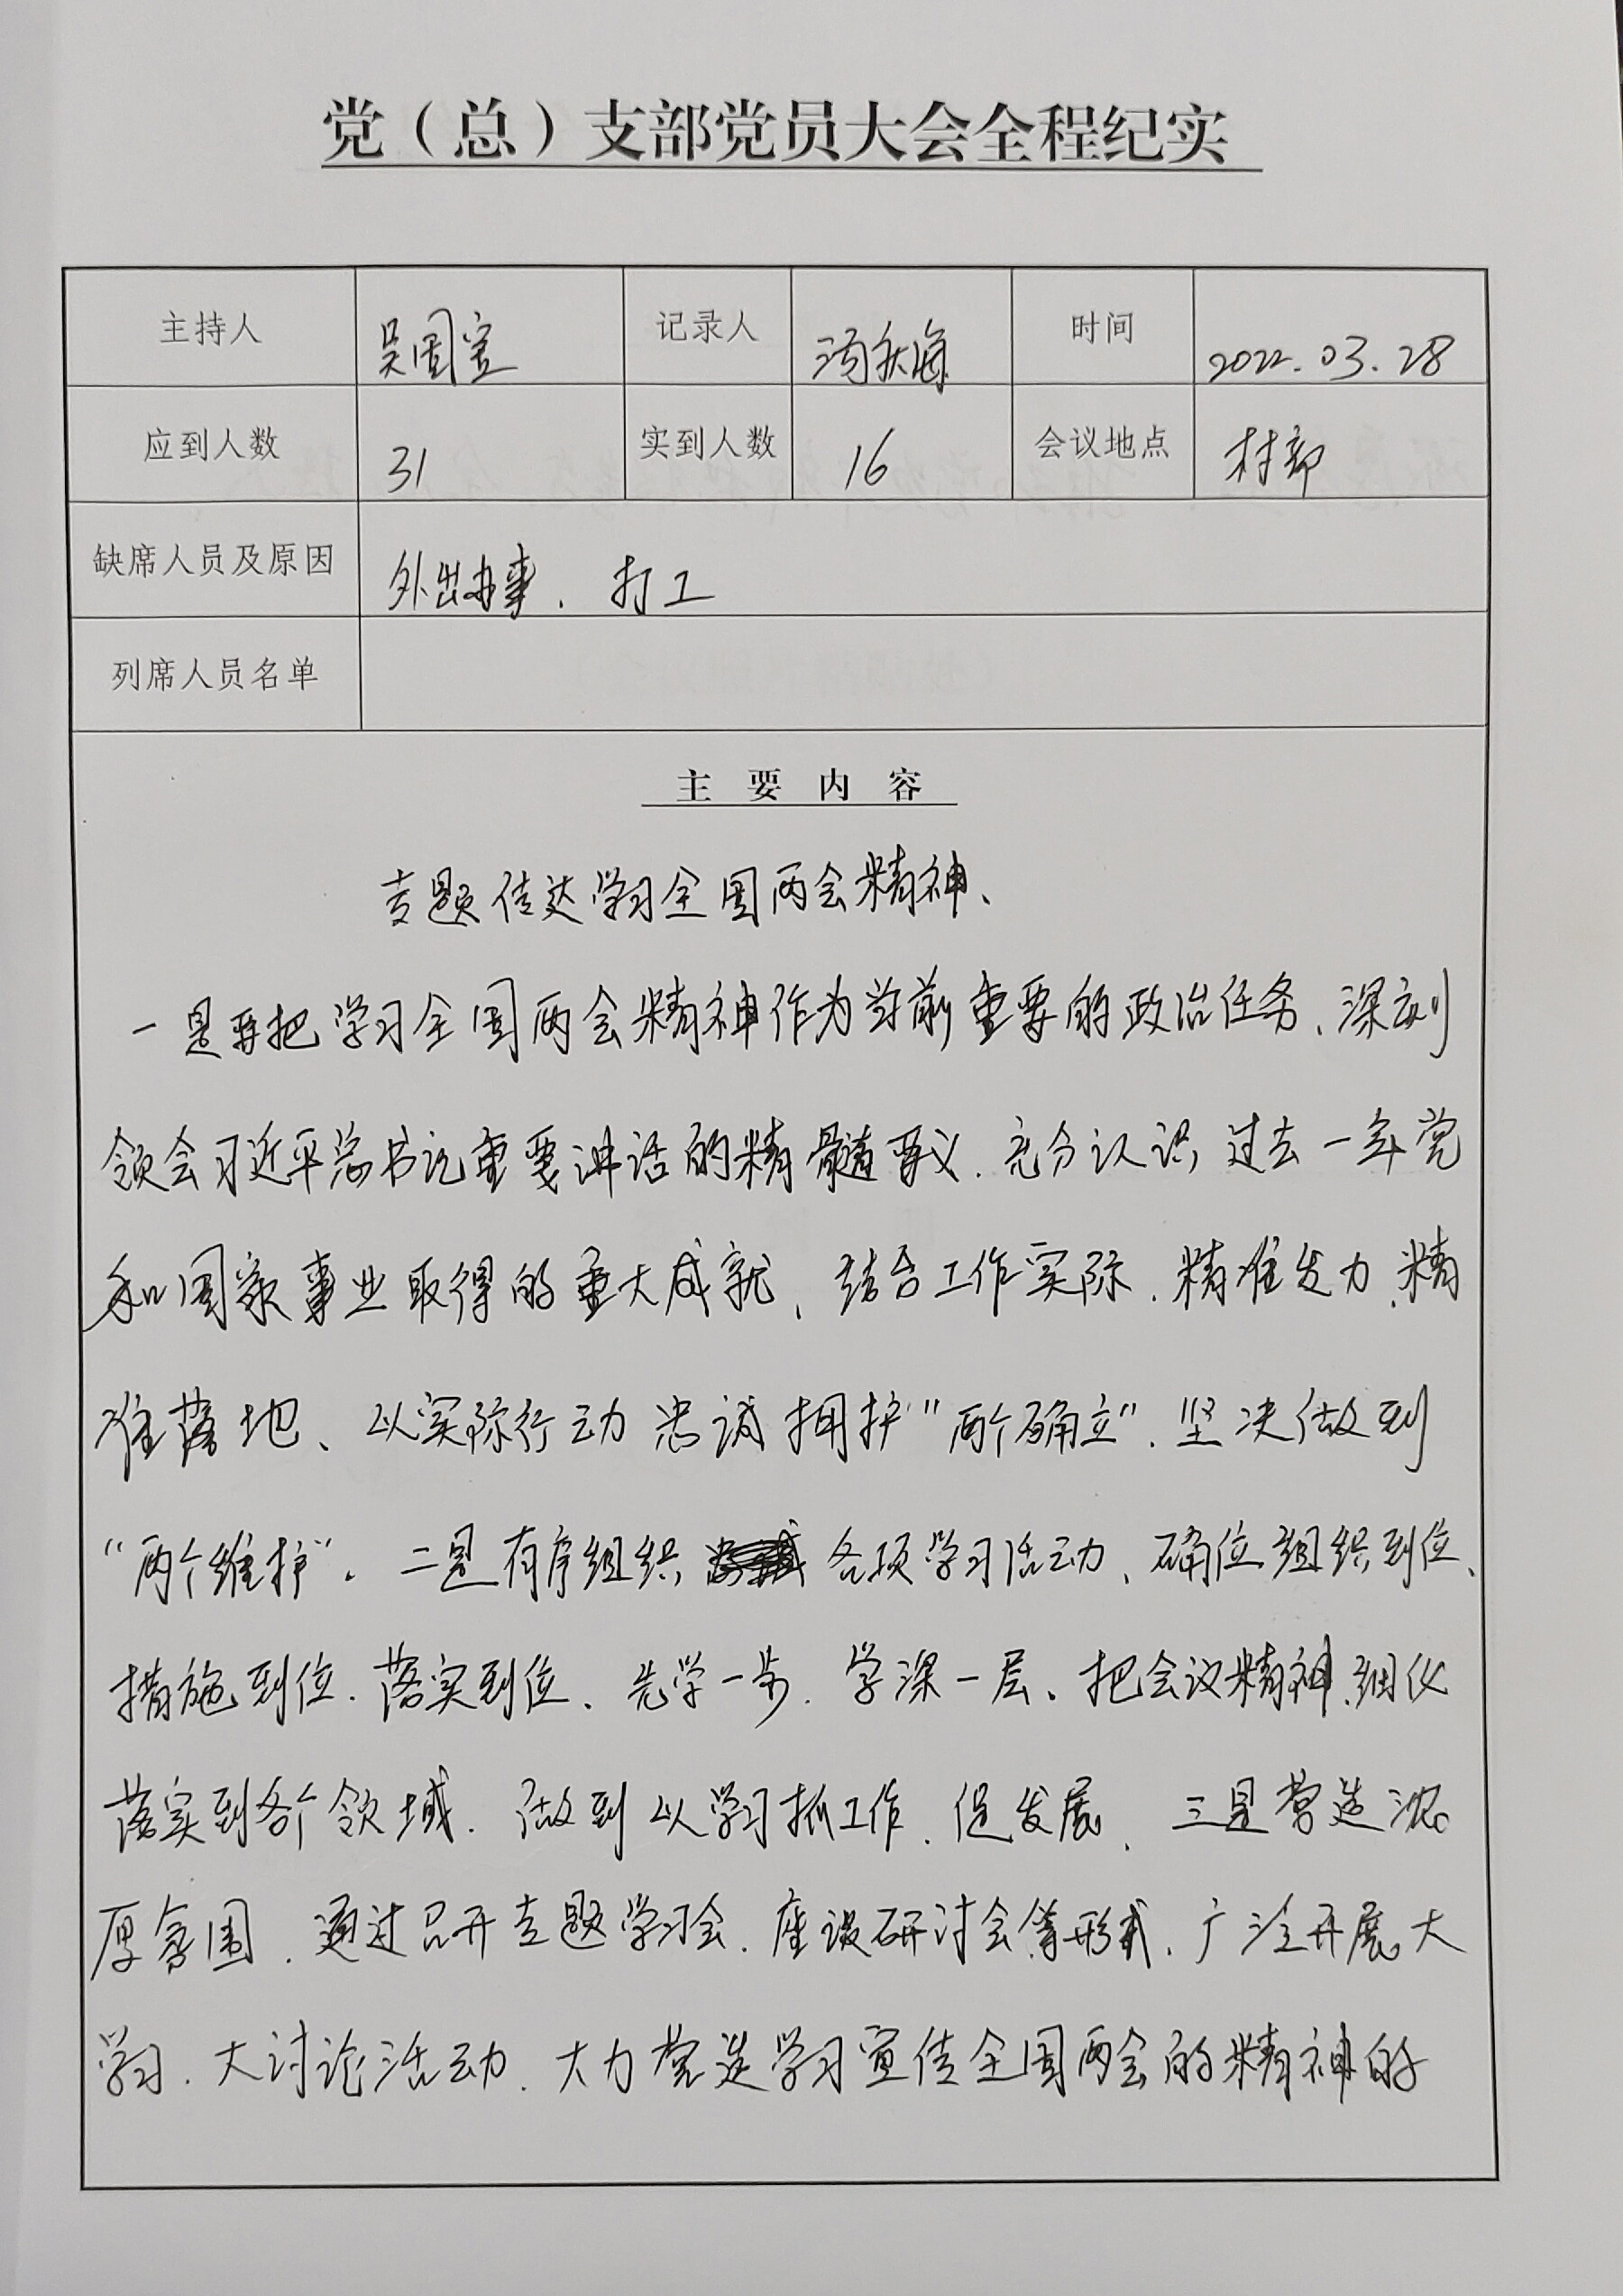 党（总）支部党员大会全程纪实
主持人 吴国宝 记录人 时间 2022.03.28
应到人数 31 实到人数 16 会议地点 村部
缺席人员及原因 外出办事、打工
列席人员名单
主要内容
专题传达学习全国两会精神、
一是要把学习全国两会精神作为当前重要的政治任务、深刻
领会习近平总书记重要讲话的精髓要义、充分认识过去一年党
和国家事业取得的重大成就、结合工作实际、精准发力、精
准落地、以实际行动忠诚拥护"两个确立"、坚决做到
"两个维护"。二是有序组织各项学习活动、确位组织到位、
措施到位、落实到位、先学一步、学深一层、把会议精神、细化
落实到各个领域、做到以学习抓工作、促发展、三是营造浓
厚氛围、通过召开专题学习会、座谈研讨会等形式、广泛开展大
学习、大讨论活动、大力营造学习宣传全国两会的精神的